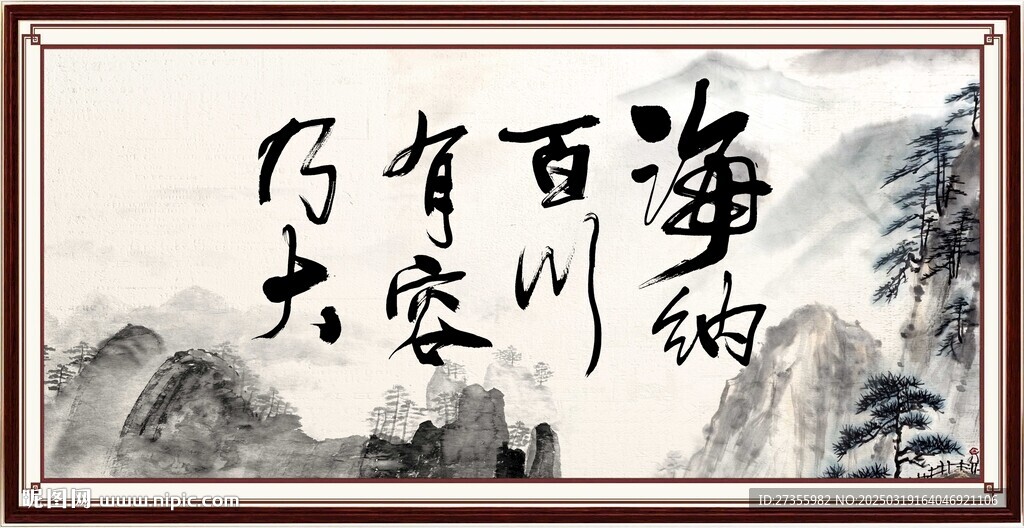 海纳
百川
有容
乃大
昵图网 www.nipic.com
ID:27355982 NO:20250319164046921106